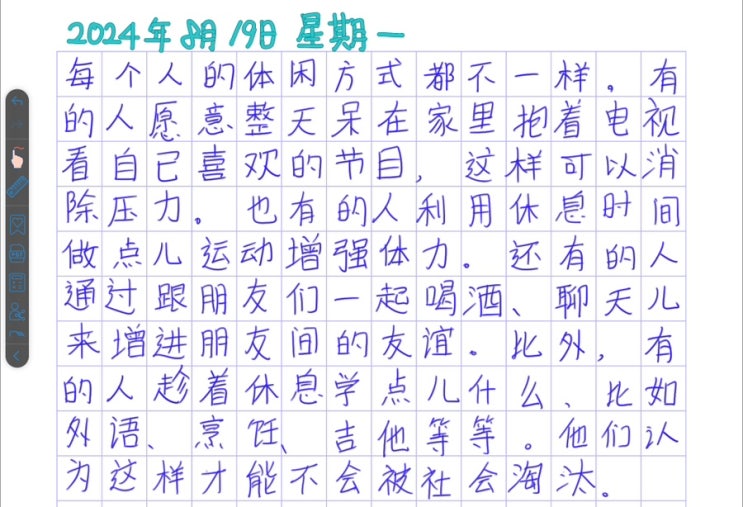 2024年8月19日 星期一
每个人的体闲方式都不一样。有
的人愿意整天呆在家里抱着电视
看自已喜欢的节目，这样可以消
除压力。也有的人利用休息时间
做点儿运动增强体力。还有的人
通过跟朋友们一起喝酒、聊天儿
来增进朋友间的友谊。比外，有
的人趁着休息学点儿什么、比如
外语、烹饪、吉他等等。他们认
为这样才能不会被社会淘汰。